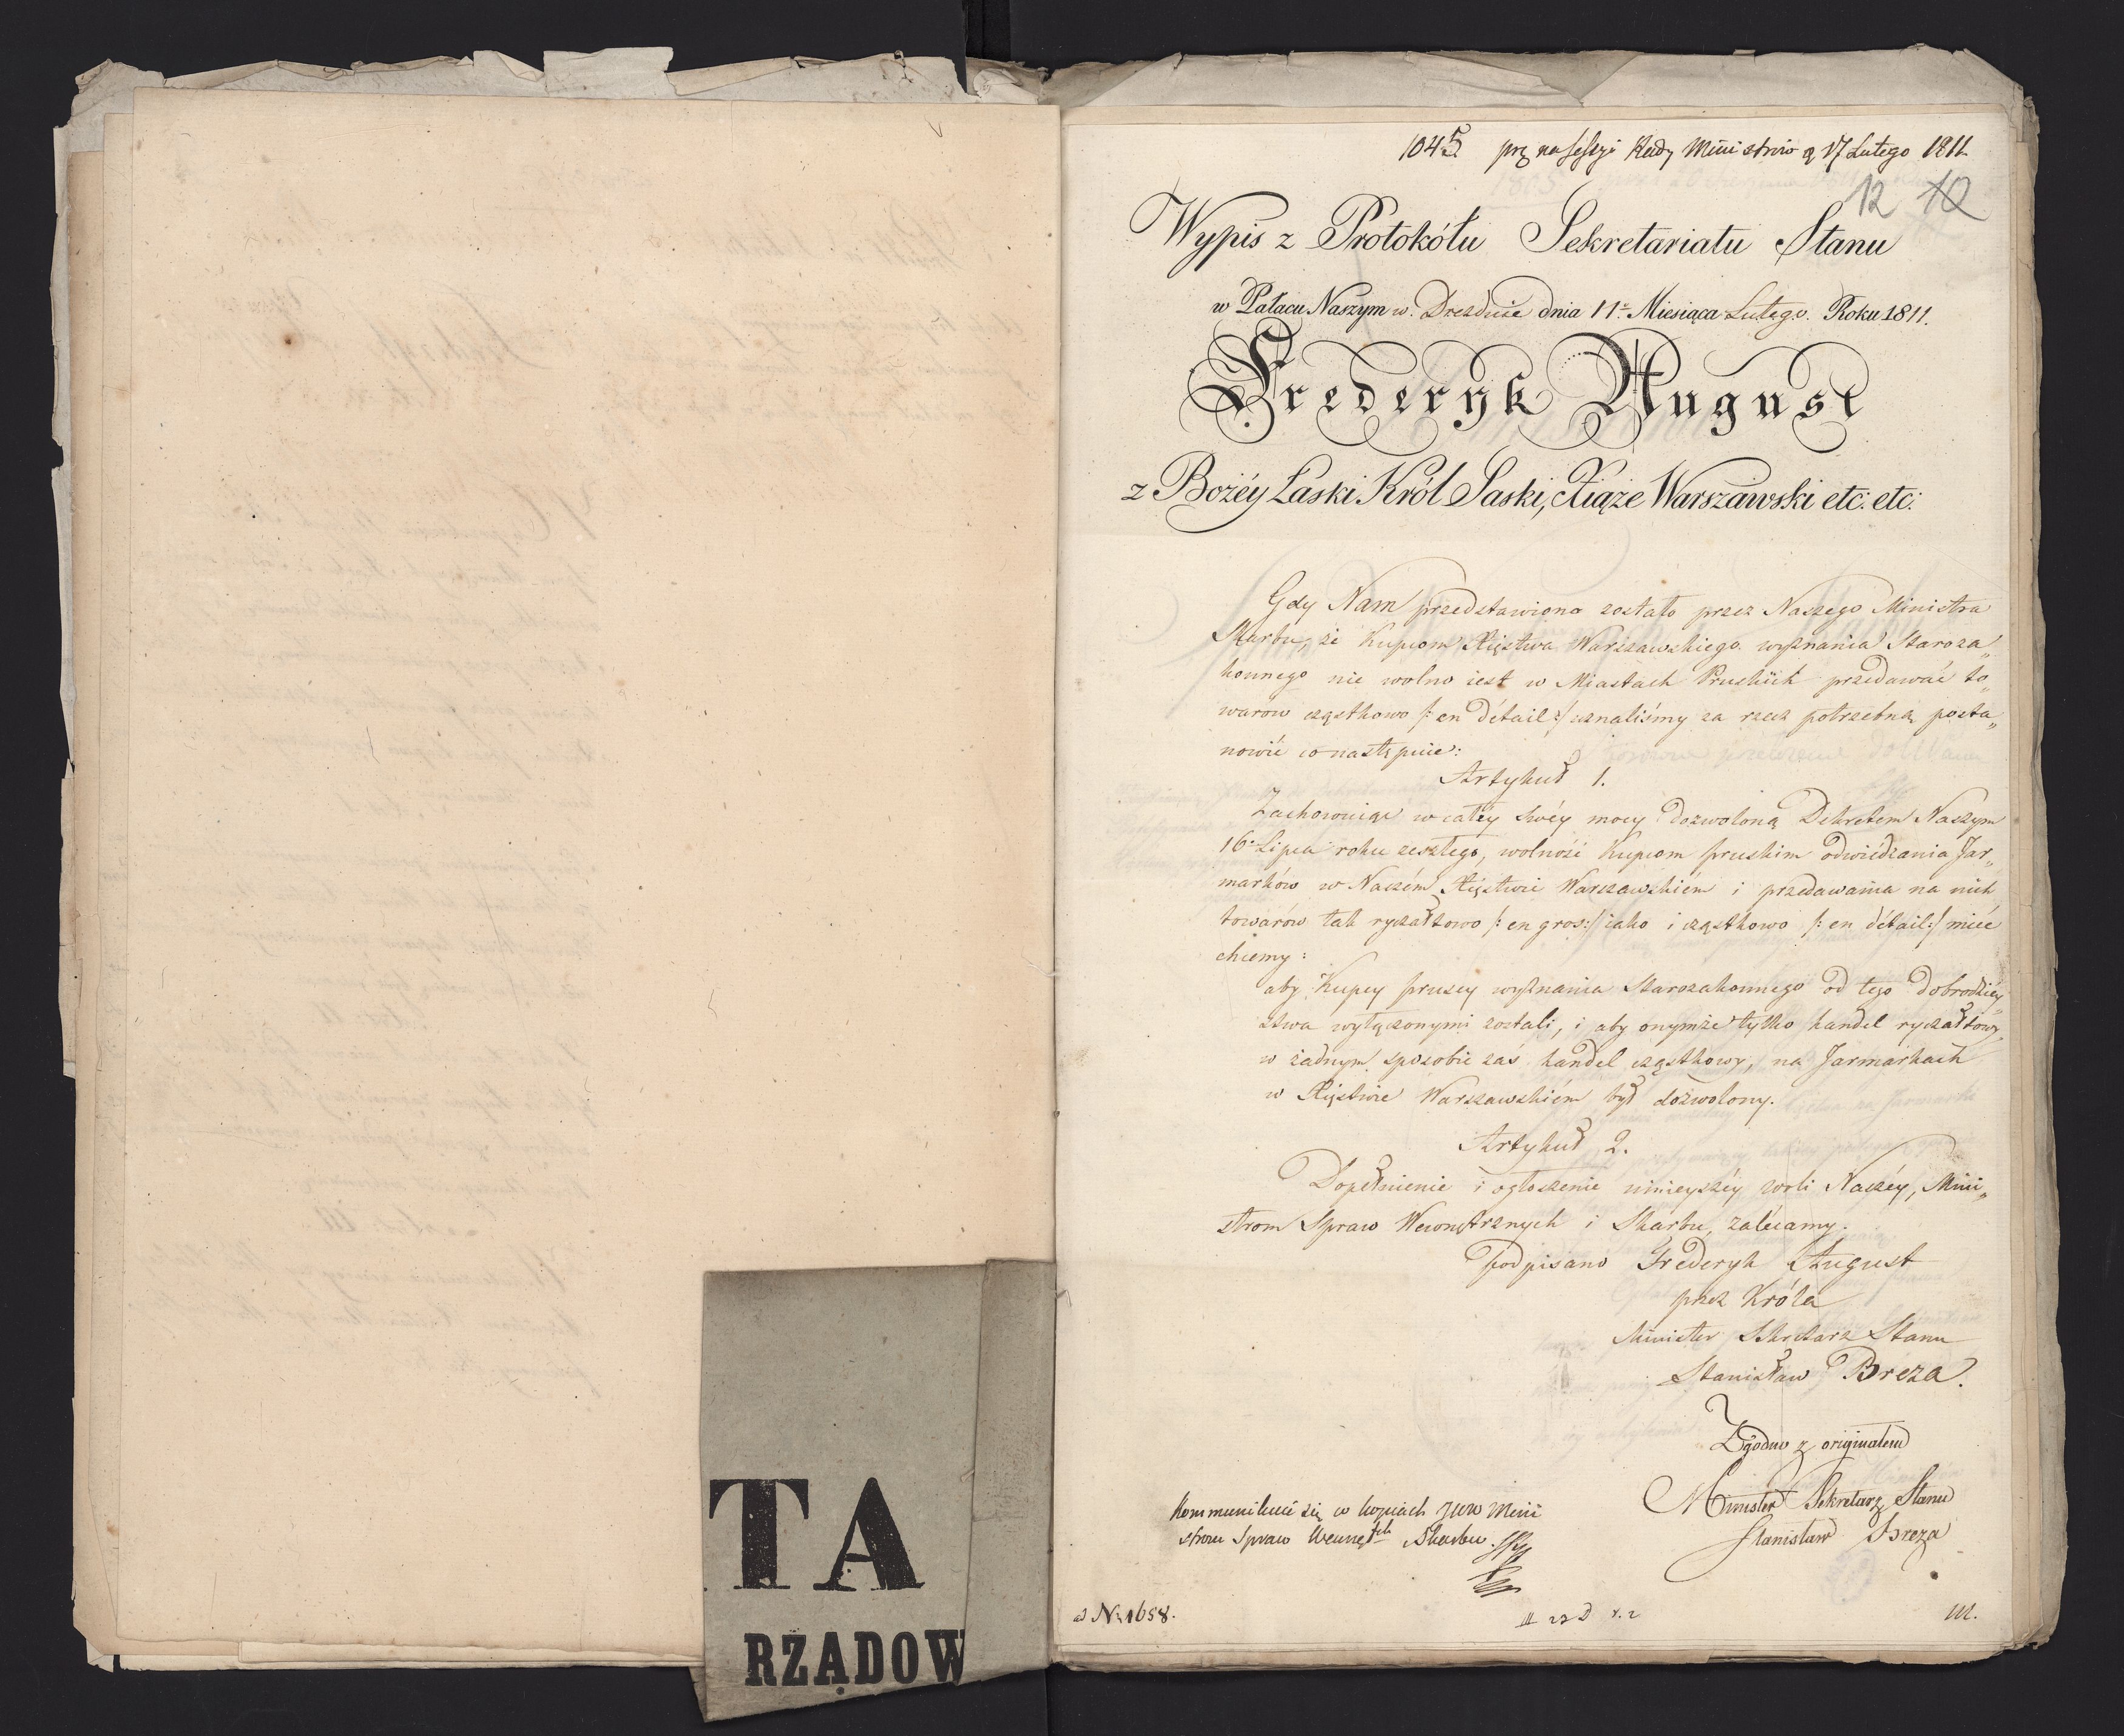 TA
RZĄDOW
1045 prz na Sessyi Rady Ministrów d 17 Lutego 1811
12 10
Wypis z Protokółu Sekretariatu Stanu
w Pałacu Naszym w Dreznie dnia 11º Miesiąca Lutego. Roku 1811.
Frederyk August
z Bożéy Łaski Król Saski, Xiąże Warszawski etc: etc:
Gdy Nam przedstawiono zostało przez Naszego Ministra
Skarbu, że Kupcom Xięstwa Warszawskiego wyznania Staroza„
konnego nie wolno iest w Miastach Pruskich przedawać to„
warów cząstkowo /: en détail :/ uznaliśmy za rzecz potrzebną posta„
nowić co następuie:
Artykuł 1.
Zachowuiąc w całéy swéy mocy dozwoloną Dekretem Naszym
16º Lipca roku zeszłego, wolność Kupcom pruskim odwiédzania Jar„
marków w Naszém Xięstwie Warszawskiém i przedawania na nich
towarów tak ryczałtowo /: en gros :/ iako i cząstkowo /: en détail :/ mieć
chcemy:
aby Kupcy pruscy wyznania Starozakonnego od tego dobrodziéy„
stwa wyłączonymi zostali, i aby onymże tylko handel ryczałtowy
w żadnym sposobie zaś handel cząstkowy, na Jarmarkach
w Xięstwie Warszawskiém był dozwolony.
Artykuł 2.
Dopełnienie i ogłoszenie ninieyszéy woli Naszéy, Mini„
strom Spraw Wewnętrznych i Skarbu, zalécamy.
Podpisano Frederyk August
przez Króla
Minister Sekretarz Stanu
Stanisław Breza.
Zgodno z originałem
Minister Sekretarz Stanu
Stanisław Breza
Kommunikuie się w kopiach JWW Mini
strom Spraw Wewnętch Skarbu.
ad Nr 1658.
II 27 D v. 2
M.